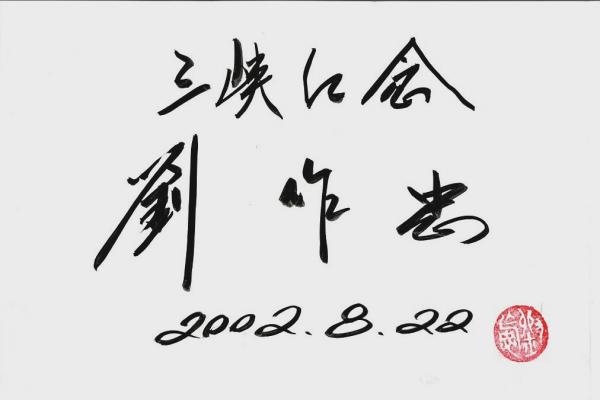 三峡纪念
劉作忠
2002.8.22